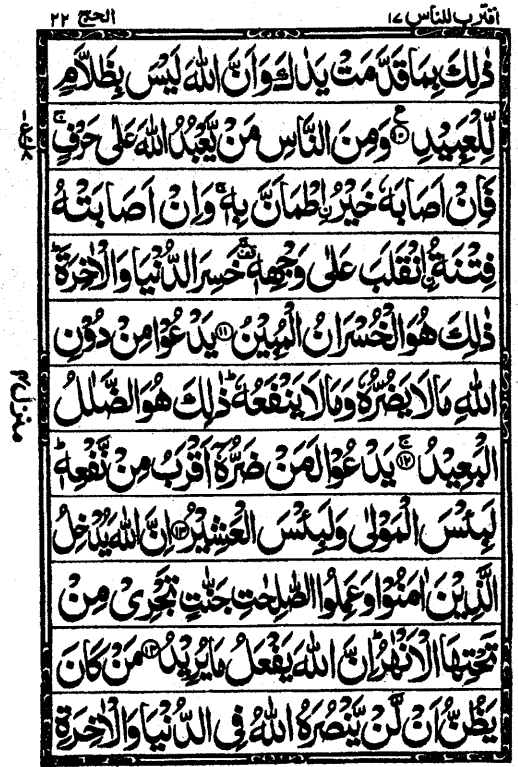 اقترب للناس ۱۷
الحج ۲۲
ذٰلِكَ بِمَا قَدَّمَتْ يَدٰكَ وَاَنَّ اللّٰهَ لَيْسَ بِظَلَّامٍ
لِّلْعَبِيْدِ ۝۱۰ ع وَمِنَ النَّاسِ مَنْ يَّعْبُدُ اللّٰهَ عَلٰى حَرْفٍ ۚ
فَاِنْ اَصَابَهٗ خَيْرُ ِۨاطْمَاَنَّ بِهٖ ۚ وَاِنْ اَصَابَتْهُ
فِتْنَةُ ِۨانْقَلَبَ عَلٰى وَجْهِهٖ ۚ خَسِرَ الدُّنْيَا وَالْاٰخِرَةَ ؕ
ذٰلِكَ هُوَ الْخُسْرَانُ الْمُبِيْنُ ۝۱۱ يَدْعُوْا مِنْ دُوْنِ
اللّٰهِ مَا لَا يَضُرُّهٗ وَمَا لَا يَنْفَعُهٗ ؕ ذٰلِكَ هُوَ الضَّلٰلُ
الْبَعِيْدُ ۝۱۲ ۚ يَدْعُوْا لَمَنْ ضَرُّهٗۤ اَقْرَبُ مِنْ نَّفْعِهٖ ؕ
لَبِئْسَ الْمَوْلٰى وَلَبِئْسَ الْعَشِيْرُ ۝۱۳ اِنَّ اللّٰهَ يُدْخِلُ
الَّذِيْنَ اٰمَنُوْا وَعَمِلُوا الصّٰلِحٰتِ جَنّٰتٍ تَجْرِىْ مِنْ
تَحْتِهَا الْاَنْهٰرُ ؕ اِنَّ اللّٰهَ يَفْعَلُ مَا يُرِيْدُ ۝۱۴ مَنْ كَانَ
يَظُنُّ اَنْ لَّنْ يَّنْصُرَهُ اللّٰهُ فِى الدُّنْيَا وَالْاٰخِرَةِ
منزل ۴